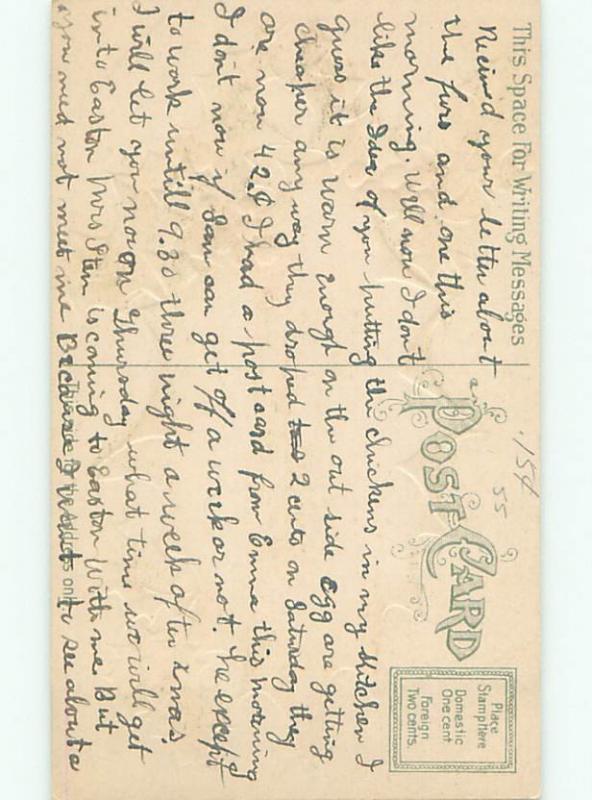 This Space For Writing Messages
Reciev'd your letter about
the furs and one this
morning. Well now I don't
like the Idea of you putting the chickens in my kitchen I
guess it is warm enough on the out side egg are getting
cheaper any way they droped 2 cents on Saturday they
are now 42.¢ I had a post card from Emma this morning
I don't now if Sam can get off a week or not. he expect
to work untill 9.30 three night a week after Xmas.
I will let you now on Thursday what time we will get
into Easton Mrs Stem is coming to Easton with me But
you need not meet me Because I want to see about a
POST CARD
.15¢
55
Place
Stamp Here
Domestic
One cent
Foreign
Two cents.